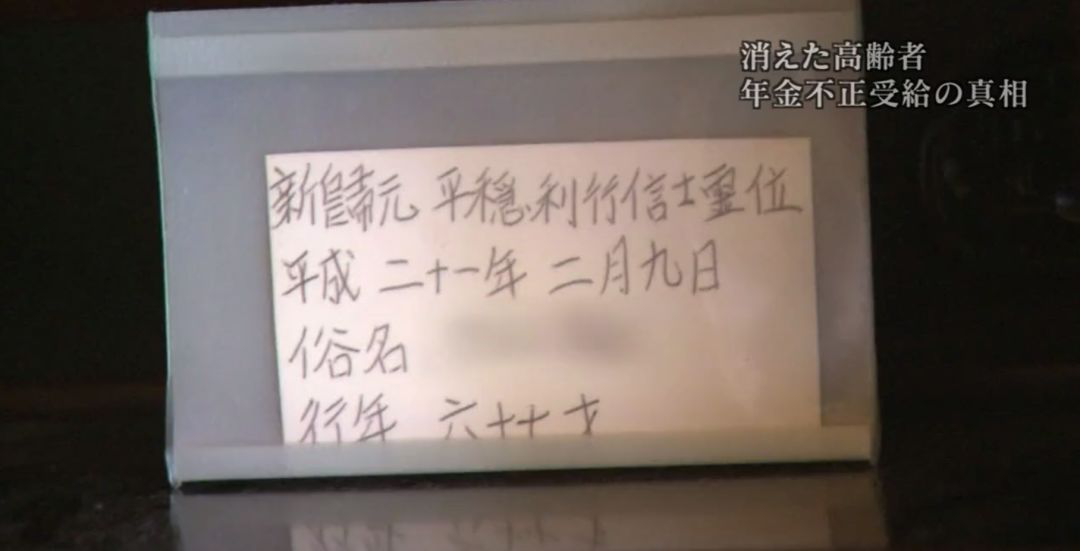 消えた高齢者
年金不正受給の真相
新歸元 平穏利行信士霊位
平成 二十一年 二月九日
俗名
行年 六十 才